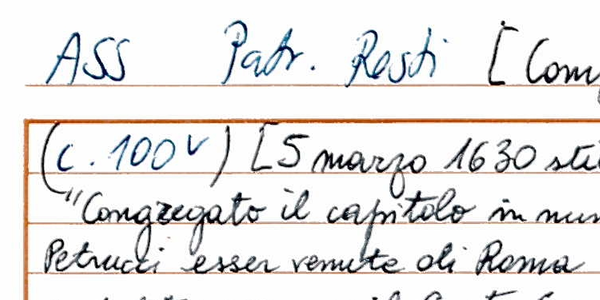 ASS Patr. Resti [Com
(c. 100v) [5 marzo 1630 sti
"Congregato il capitolo in num
Petrucci esser venute di Roma